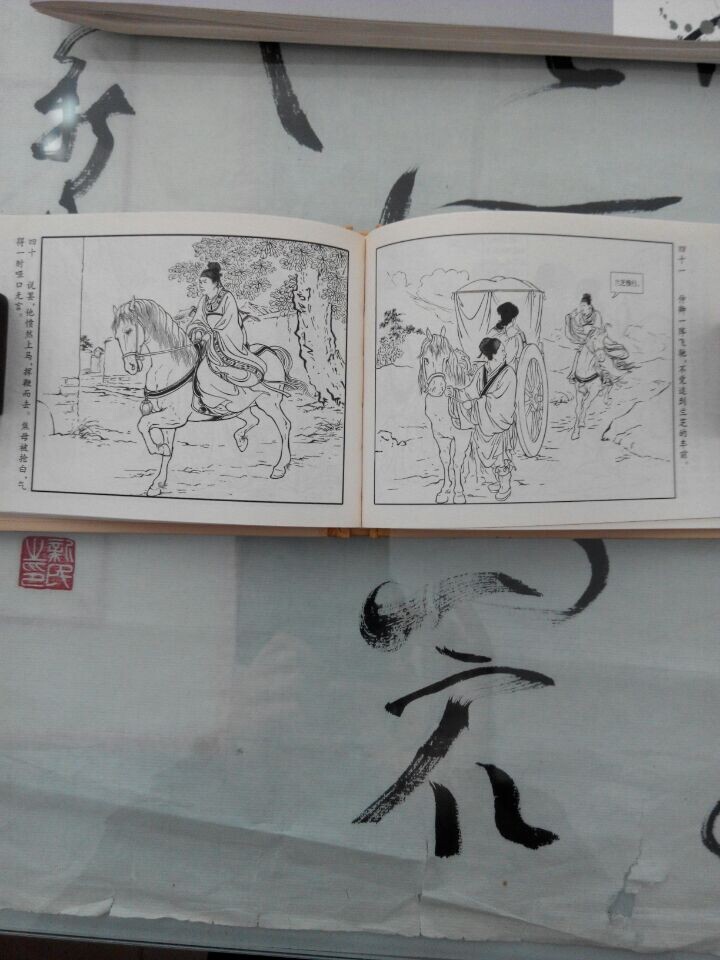 四十 说罢，他愤然上马，挥鞭而去。焦母被抢白，气
得一时哑口无言。
四十一 仲卿一阵飞驰，不觉追到兰芝的车前。
兰芝慢行。
新民
之印